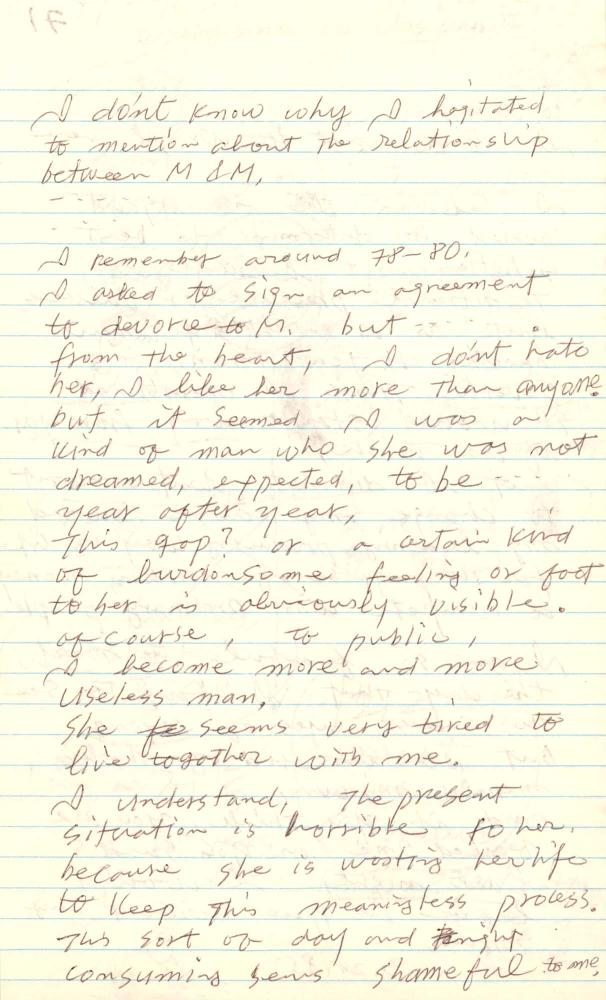 71
I dón't know why I hagitated
to mention about the relationship
between M & M,
- - -
I remember around 78-80.
I asked to sign an agreement
to devorce to M. but - - -
from the heart, I dón't hate
her, I like her more than anyone.
but it seemed I was a
kind of man who she was not
dreamed, expected, to be - - -
year after year,
This gap? or a certain kind
of burdonsome feeling or fact
to her is obviously visible.
of course, to public,
I become more and more
useless man,
She seems very tired to
live together with me.
I understand, The present
situation is horrible fo her.
because she is wasting her life
to keep this meaningless process.
This sort of day and night
consuming sems shameful to me.